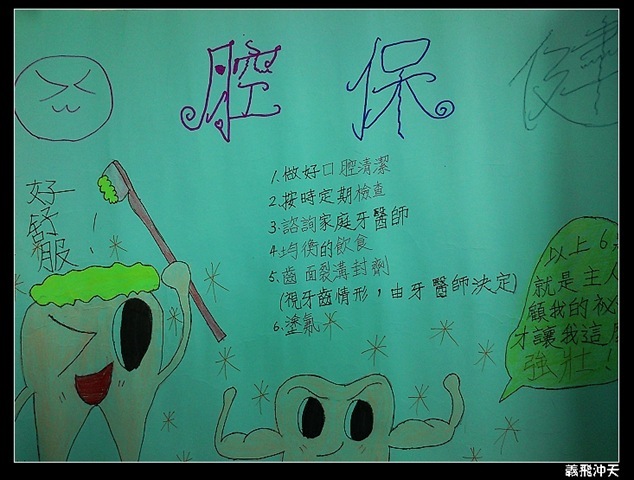 腔 保 健
好舒服!
1.做好口腔清潔
2.按時定期檢查
3.諮詢家庭牙醫師
4.均衡的飲食
5.齒面裂溝封劑
(視牙齒情形,由牙醫師決定)
6.塗氟
以上6
就是主人
顧我的祕
才讓我這
強壯!
義飛沖天